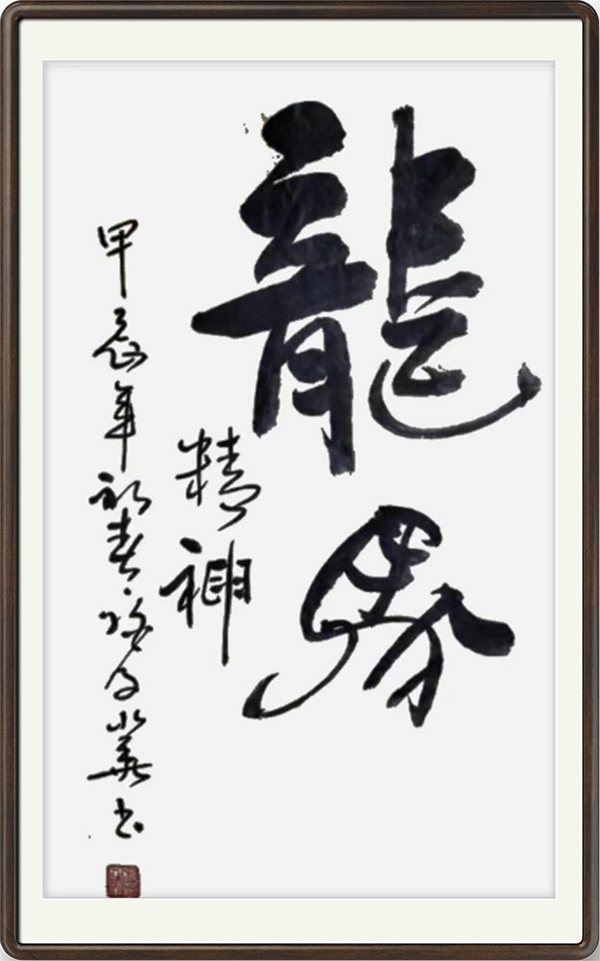 龍馬
精神
甲辰年初春 书